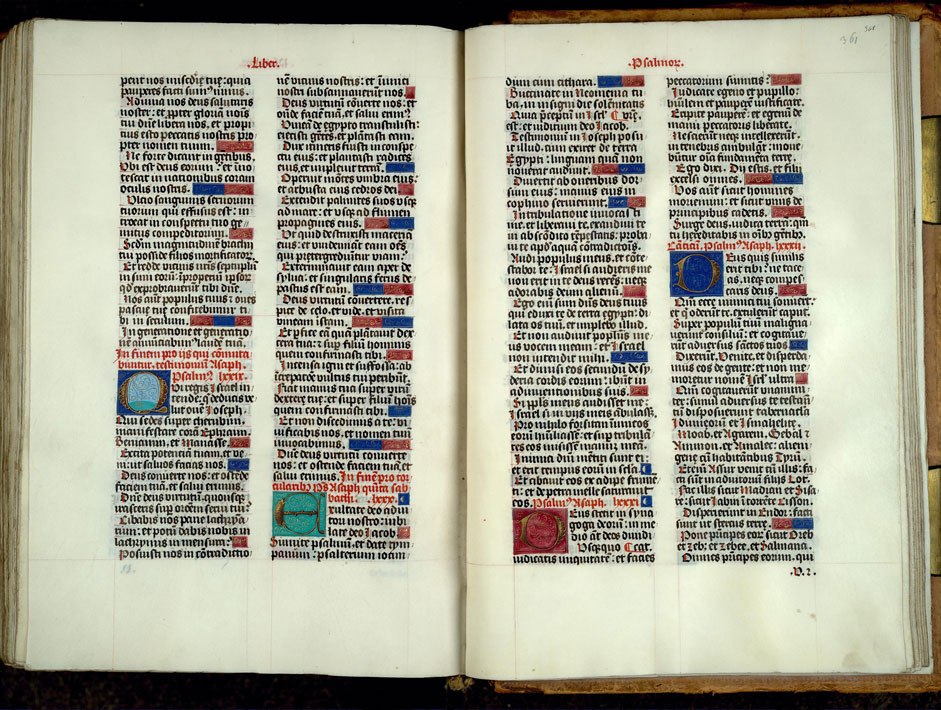 .Liber.
pient nos misc̄die tue: quia
pauperes facti sum⁹ nimis.
Adiuua nos deus salutaris
noster: et ꝓpter gloriā nois
tui dn̄e libera nos. et propi
tius esto peccatis nostris pro
pter nomen tuum.
Ne forte dicant in gētibus.
Vbi est deus eorum: et ino
tescat in nationibus coram
oculis nostris.
Vltio sanguinis seruorum
tuorum qui effusus est: in
troeat in conspectu tuo ge
mitus compeditorum.
Scd̄m magnitudinē brachii
tui posside filios mortificatorꝝ.
Et redde vicinis nr̄is septuplū
in sinu eorū: īproperiū ipsorꝝ
qd̓ exprobrauerūt tibi dn̄e.
Nos aūt populus tuus ⁊ oues
pascue tue confitebimur ti
bi in seculum.
In generatione et generatio
nē annunciabim⁹ laudē tuā.
In finem pro iis qui cōmuta
buntur. testimoniū Asaph.
Psalm⁹ lxxix.
Qui regis israel in
tende: q̄ deducis ve
lut ouē Joseph.
Qui sedes super cherubim.
manifestare corā Ephraim
Beniamin. et Manasse.
Excita potentiā tuam. et ve
ni: vt saluos facias nos.
Deus conuerte nos: et oñde
faciem tuam. et salui erimus.
Dn̄e deus virtutū. quousq̄
irasceris sup orōem serui tui?
Cibabis nos pane lachryma
rum: et potū dabis nobis in
lachrymis in mensura?
Posuisti nos in cōtradictio
nē vicinis nostris: et inimici
nostri subsannauerūt nos.
Deus virtutū cōuerte nos: et
oñde faciē tuā. et salui erim⁹.
Vineā de egypto transtulisti:
eiecisti gētes. et plantasti eam.
Dux itineris fuisti in conspe
ctu eius: et plantasti radices
eius. et impleuit terrā.
Operuit mōtes vmbra eius:
et arbusta eius cedros dei.
Extendit palmites suos vsq̄
ad mare: et vsq̄ ad flumen
propagines eius.
Vt quid destruxisti maceriā
eius: et vindemiāt eam oēs
qui pretergrediūtur viam?
Exterminauit eam aper de
sylua: et singularis ferus de
pastus est eam.
Deus virtutū conuertere. res
pice de celo. et vide. et visita
vineam istam.
Et ꝑfice eā quā plātauit dex
tera tua: ⁊ sup̄ filiū hominis
quem confirmasti tibi.
Incensa igni et suffossa: ab
īcrepatōe vultus tui peribūt.
Fiat manus tua super virū
dextere tue: et super filiū hoīs
quem confirmasti tibi.
Et non discedimus a te: vi
uificabis nos. et nomen tuū
inuocabimus.
Dn̄e deus virtutū conuerte
nos: et ostēde faciem tuā. et
salui erimus. In finē pro tor
cularib⁹ Ps̄ Asaph quīta sab
bathi. lxxx.
Exultate deo adiu
tori nostro: iubi
late deo Jacob.
Sumite psalmū. et date tym
panum: psalterium iocun
.Psalmor̄.
361
dum cum cithara.
Buccinate in Neomenia tu
ba. in insigni die solēnitatis
Quia p̄ceptū in Isrl̄ vr̄e.
est: et iudicium deo Jacob.
Testimonium in Joseph posu
it illud. cum exiret de terra
Egypti: linguam quā non
nouerat audiuit.
Diuertit ab oneribus dor
sum eius: manus eius in
cophino seruierunt.
In tribulatione inuocasti
me. et liberaui te. exaudiui te
in abscōdito tēpestatis: proba
ui te apd̓ aquā cōtradictōis.
Audi populus meus. et cōte
stabor te: Israel si audieris me
non erit in te deus recēs: neq̄
adorabis deum alienū.
Ego enī sum dn̄s deus tuus
qui eduxi te de terra egypti: di
lata os tuū. et implebo illud.
Et non audiuit populus me
us vocem meam: et Israel
non intendit mihi.
Et dimisi eos secūdū de sy
deria cordis eorum: ibūt in
adinuentionibus suis.
Si plebs mea audisset me:
Israel si in viis meis ābulasset.
Pro nihilo forsitan inimicos
eorū hūiliassē: et sup tribulā
tes eos misissē manū meā.
Inimici dn̄i mētiti sūt ei:
et erit tempus eorū in scl̄a.
Et cibauit eos ex adipe frumē
ti: et de petra melle saturauit
eos. Psalm⁹ Asaph. lxxxi
Deus stetit in syna
goga deorū: in me
dio āt deos diiudi
Vsquequo cat.
iudicatis iniquitatē: et facies
peccatorum sumitis:
Iudicate egeno et pupillo:
humilem et pauperē iustificate.
Eripite pauperē: et egenū de
manu peccatoris liberate.
Nescierūt neq̄ intellexerūt.
in tenebris ambulāt: moue
būtur oīa fundamēta terre.
Ego dixi. Dii estis. et filii
excelsi omnes.
Vos aūt sicut homines
moriemini: et sicut vnus de
principibus cadetis.
Surge deus. iudica terrā: qm̄
tu hereditabis in oīb⁹ gētib⁹.
Cāticū. Psalm⁹ Asaph. lxxxii
Deus quis similis
erit tibi: ne tace
as. neq̄ compes
caris deus.
Qm̄ ecce inimici tui sonuerūt:
et q̄ oderūt te. extulerūt caput.
Super populū tuū maligna
uerunt consiliū: et cogitaue
rūt aduersus sāctos tuos
Dixerūt. Venite. et disperda
mus eos de gente: et non me
moretur nomē Isrl̄ vltra
Qm̄ cogitauerūt vnanimi
ter: simul aduersus te testamē
tū disposuerūt tabernacula
Idumeorū et Ismahelite.
Moab. et Agareni. Gebal ⁊
Ammon. et Amalec: alieni
gene cū habitātibus Tyrū.
Etenī Assur venit cū illis: fa
cti sūt in adiutoriū filiis Lot.
Fac illis sicut Madian et Sisa
re: sicut Jabin ī torrēte Cisson.
Disperierunt in Endor: facti
sunt vt stercus terre.
Pone prīcipes eorꝝ sicut Oreb
et Zeb: et Zebee. et Salmana.
Omnes prīcipes eorum. qui
V. 2.